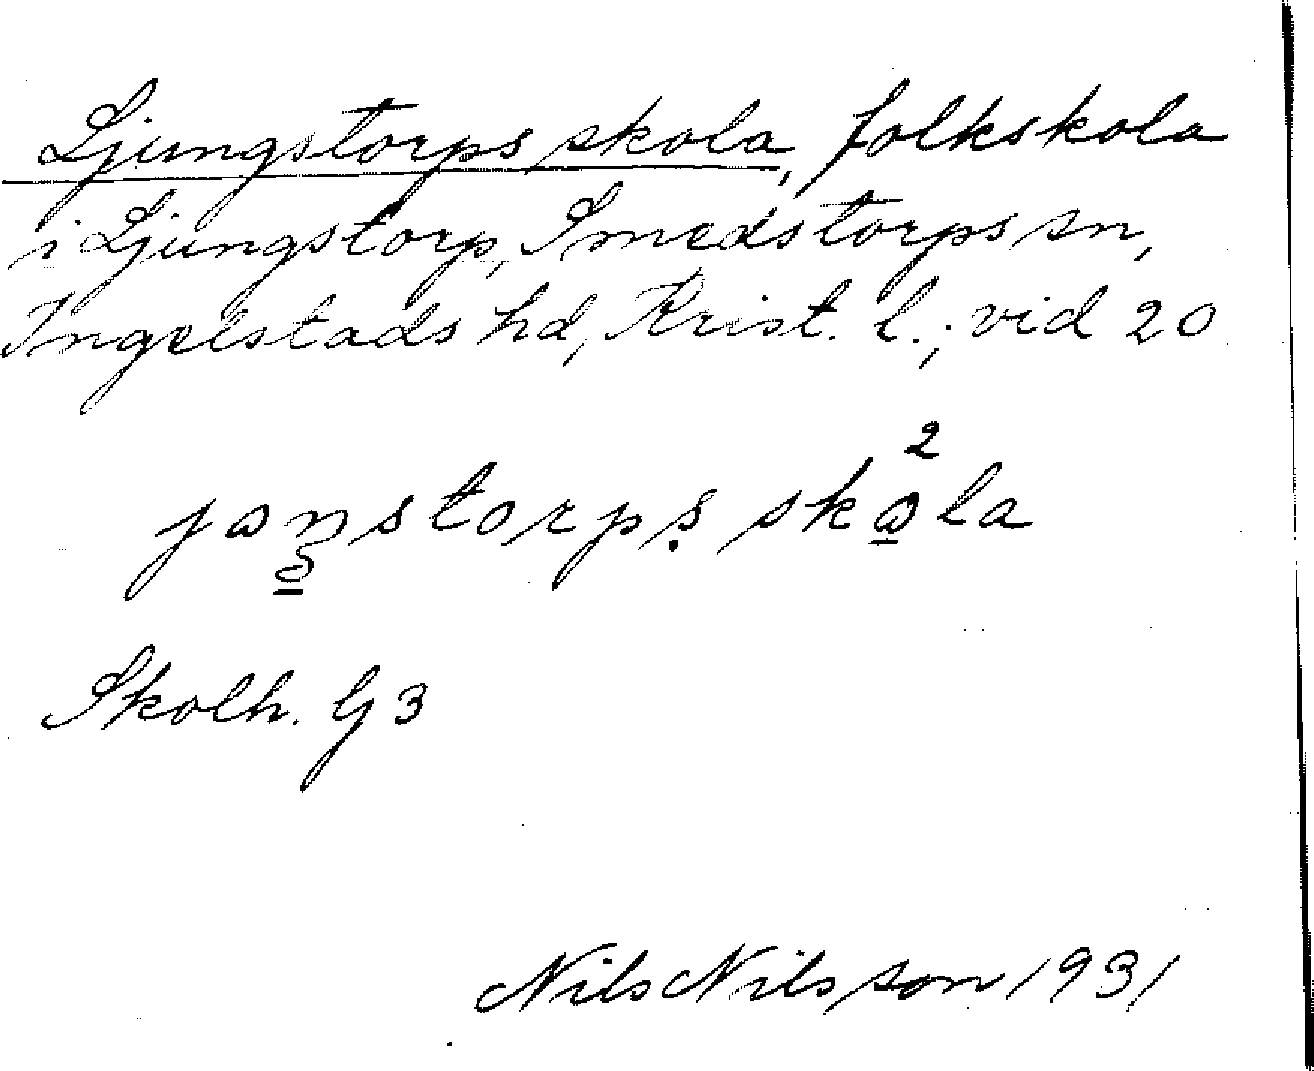 Ljungstorps skola, folkskola
i Ljungstorp, Smedstorps sn,
Ingelstads hd, Krist. l.; vid 20
skola
Skolh. G 3
Nils Nilsson 1931